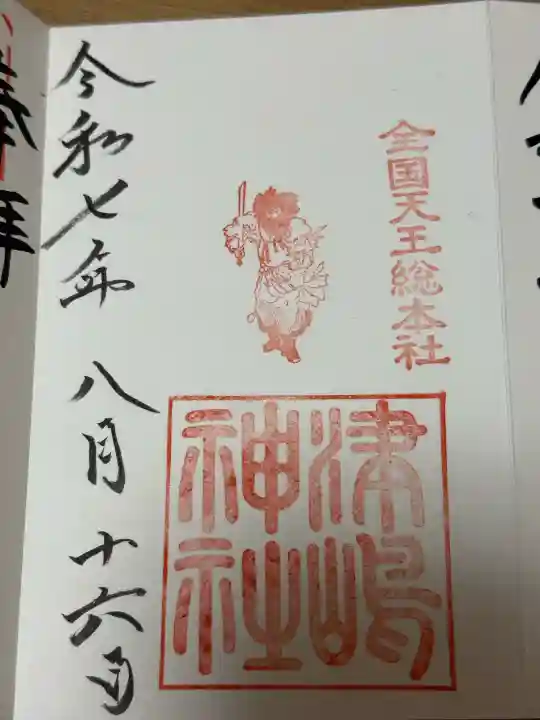 全国天王総本社
津嶋
神社
令和七年 八月 十六日
奉拝